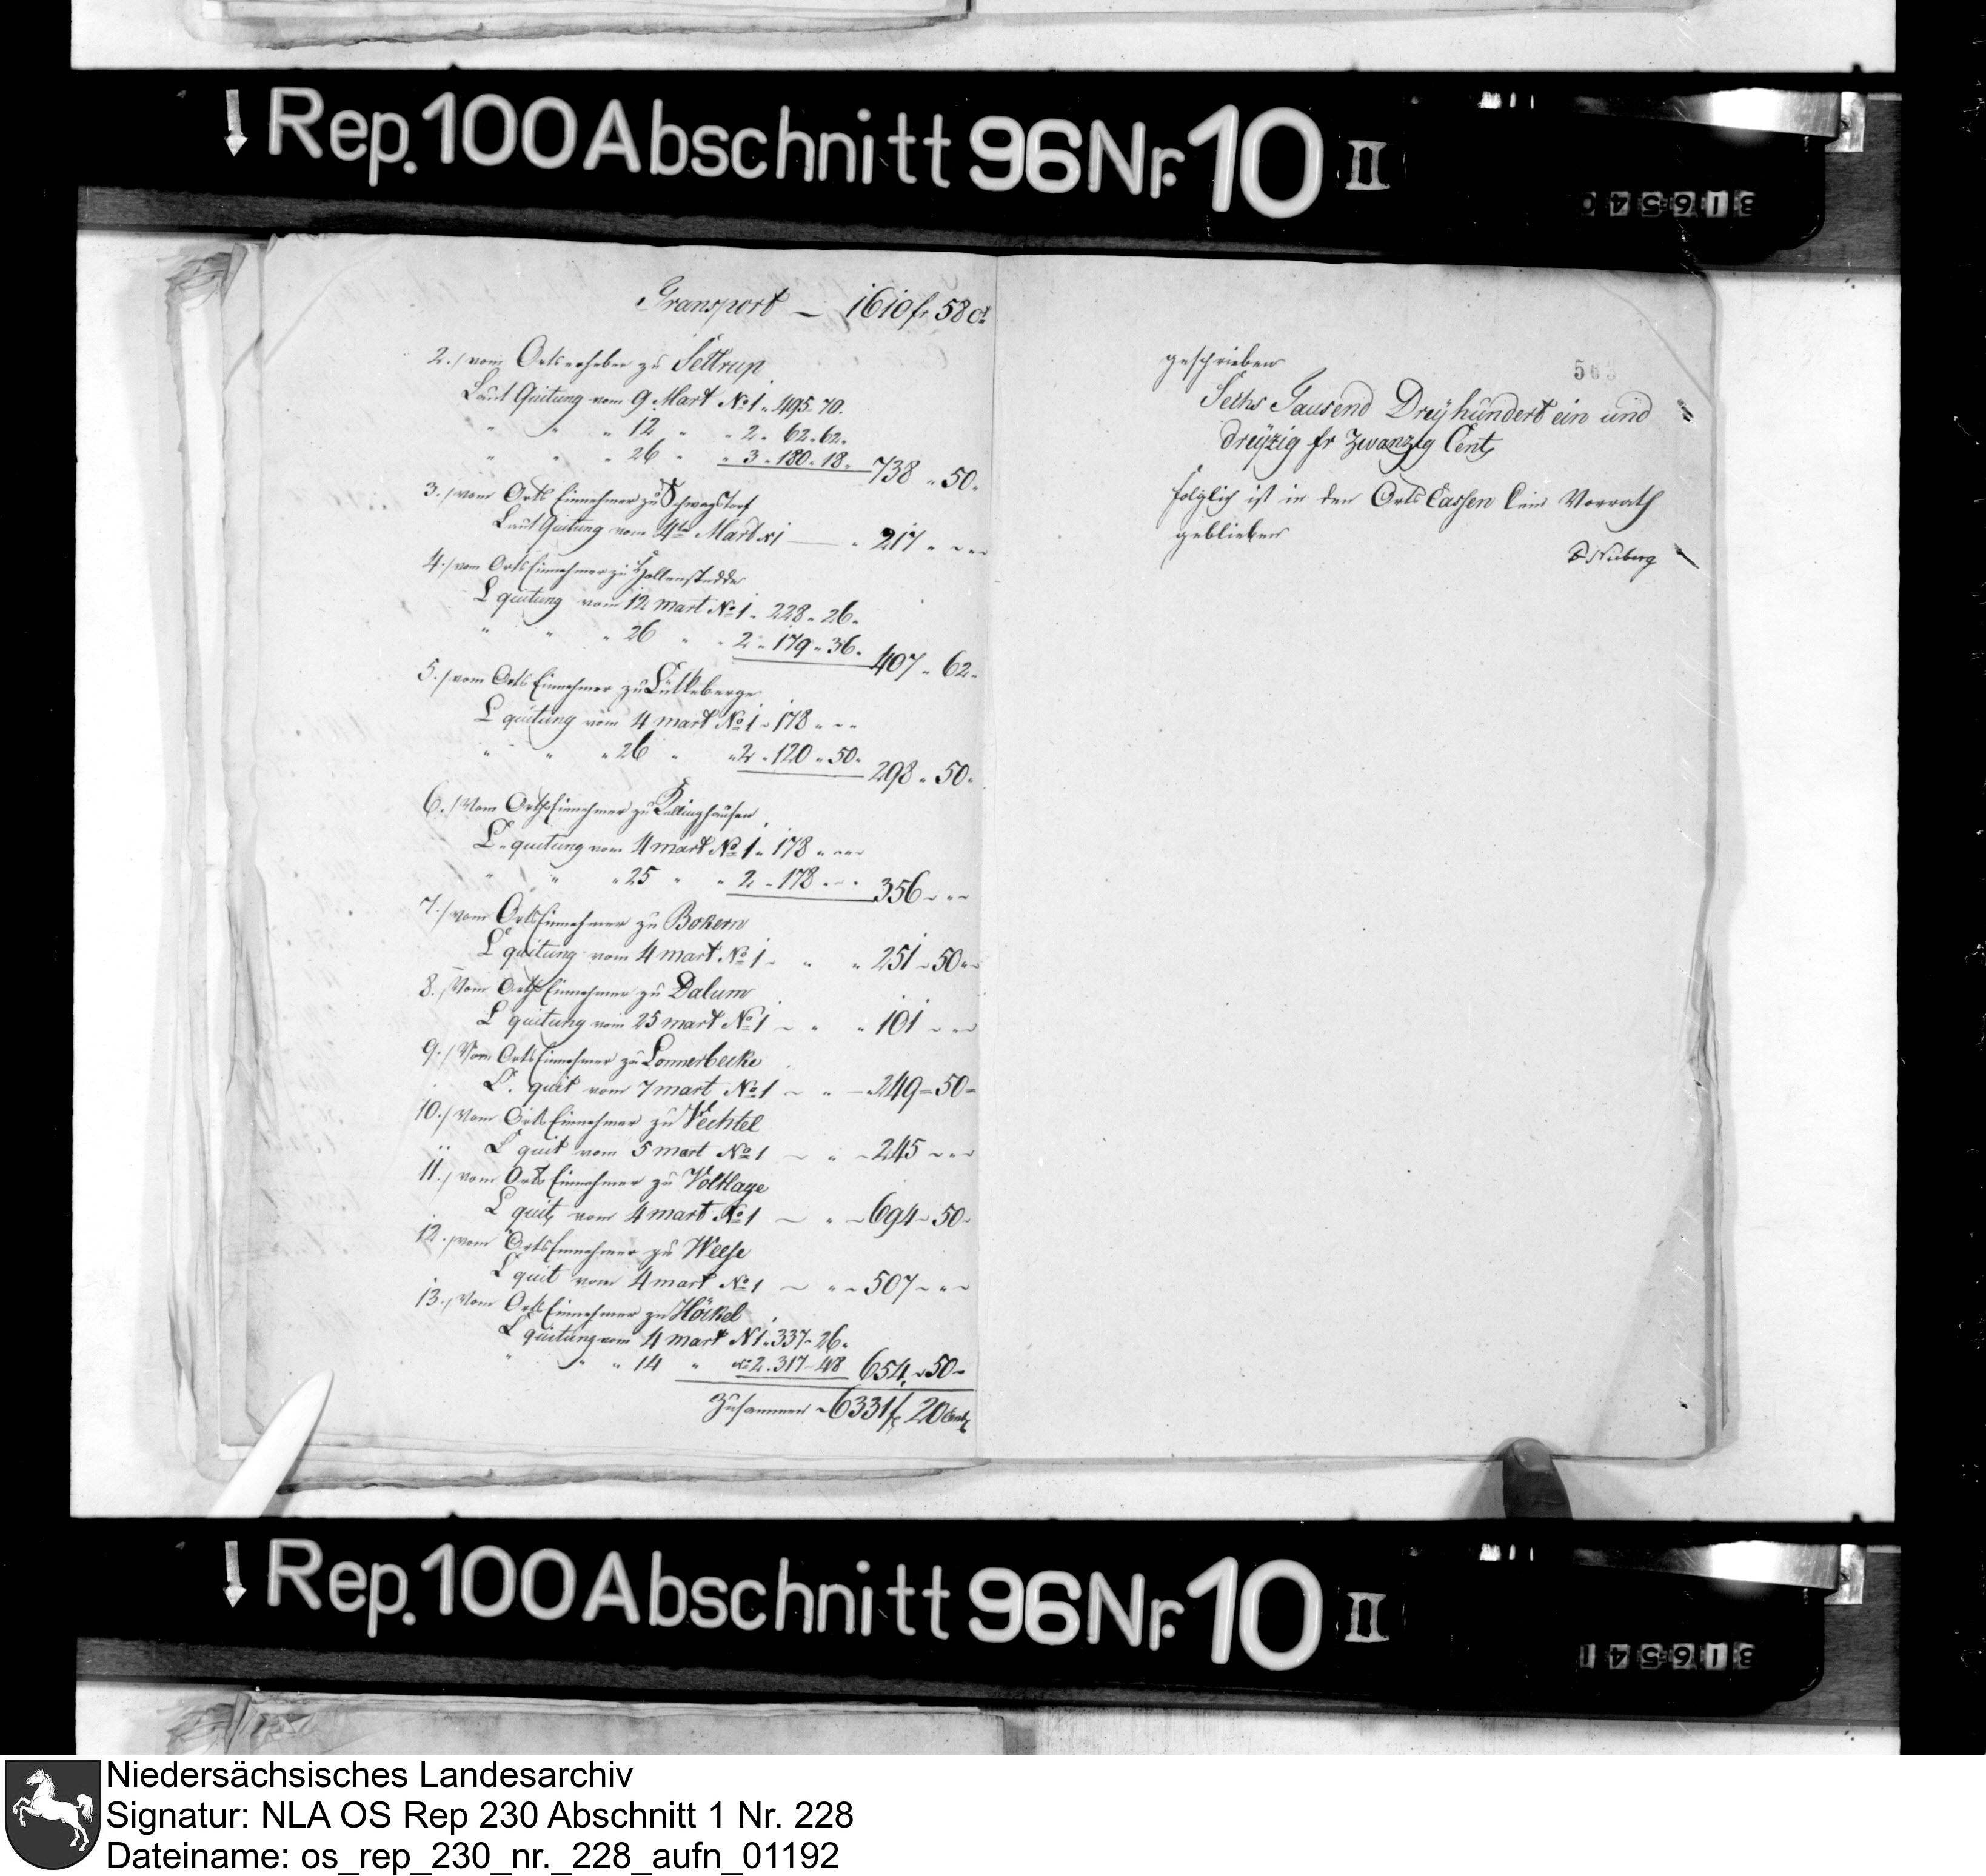 Rep. 100 Abschnitt 96 Nr. 10 II
316540
Transport — 1610 fr 58 ct
2./ vom Ortserheber zu Settrup
Laut Quitung vom 9 Mart No 1 " 495. 70.
" " " 12 " " 2 " 62 " 62 "
" " " 26 " " 3 " 180 " 18 " 738 " 50 "
3./ vom Orts Einnehmer zu Schwagstorf
Laut Quitung vom 4ten Mart N 1 — " 217 " " "
4./ vom Orts Einnehmer zu Hollenstedde
L quitung vom 12 mart No 1 " 228 " 26 "
" " " 26 " " 2 " 179 " 36 " 407 " 62 "
5./ vom Orts Einnehmer zu Lütkeberge
L quitung vom 4 mart No 1 " 178 " " "
" " " 26 " " 2 " 120 " 50 " 298 " 50 "
6./ Vom Orts Einnehmer zu Kellinghausen
L. quitung vom 4 mart No 1 " 178 " " "
" " " 25 " " 2 " 178 " " " 356 " " "
7./ vom Orts Einnehmer zu Bokern
L quitung vom 4 mart No 1 " " " 251 " 50 "
8./ Vom Orts Einnehmer zu Dalum
L quitung vom 25 mart No 1 " " " 101 " " "
9./ Vom Orts Einnehmer zu Lonnerbecke
L. quit vom 7 mart No 1 " " — " 249 = 50 =
10./ Vom Orts Einnehmer zu Vechtel
L quit vom 5 mart No 1 " " " 245 " " "
11./ vom Orts Einnehmer zu Voltlage
L quit vom 4 mart No 1 " " " 694 " 50 "
12./ vom Orts Einnehmer zu Weese
L quit vom 4 mart No 1 " " " 507 " " "
13./ Vom Orts Einnehmer zu Höckel
L quitung vom 4 mart N 1 " 337 " 26 "
" " " 14 " No 2 . 317 - 48 654 " 50 "
Zusammen " 6331 fr 20 Cent
geschrieben
Sechs Tausend Dreÿhundert ein und
dreÿzig fr Zwanzig Cent
folglich ist in den Orts Cassen kein Vorrath
geblieben
Nieberg
Rep. 100 Abschnitt 96 Nr. 10 II
316541
Niedersächsisches Landesarchiv
Signatur: NLA OS Rep 230 Abschnitt 1 Nr. 228
Dateiname: os_rep_230_nr._228_aufn_01192